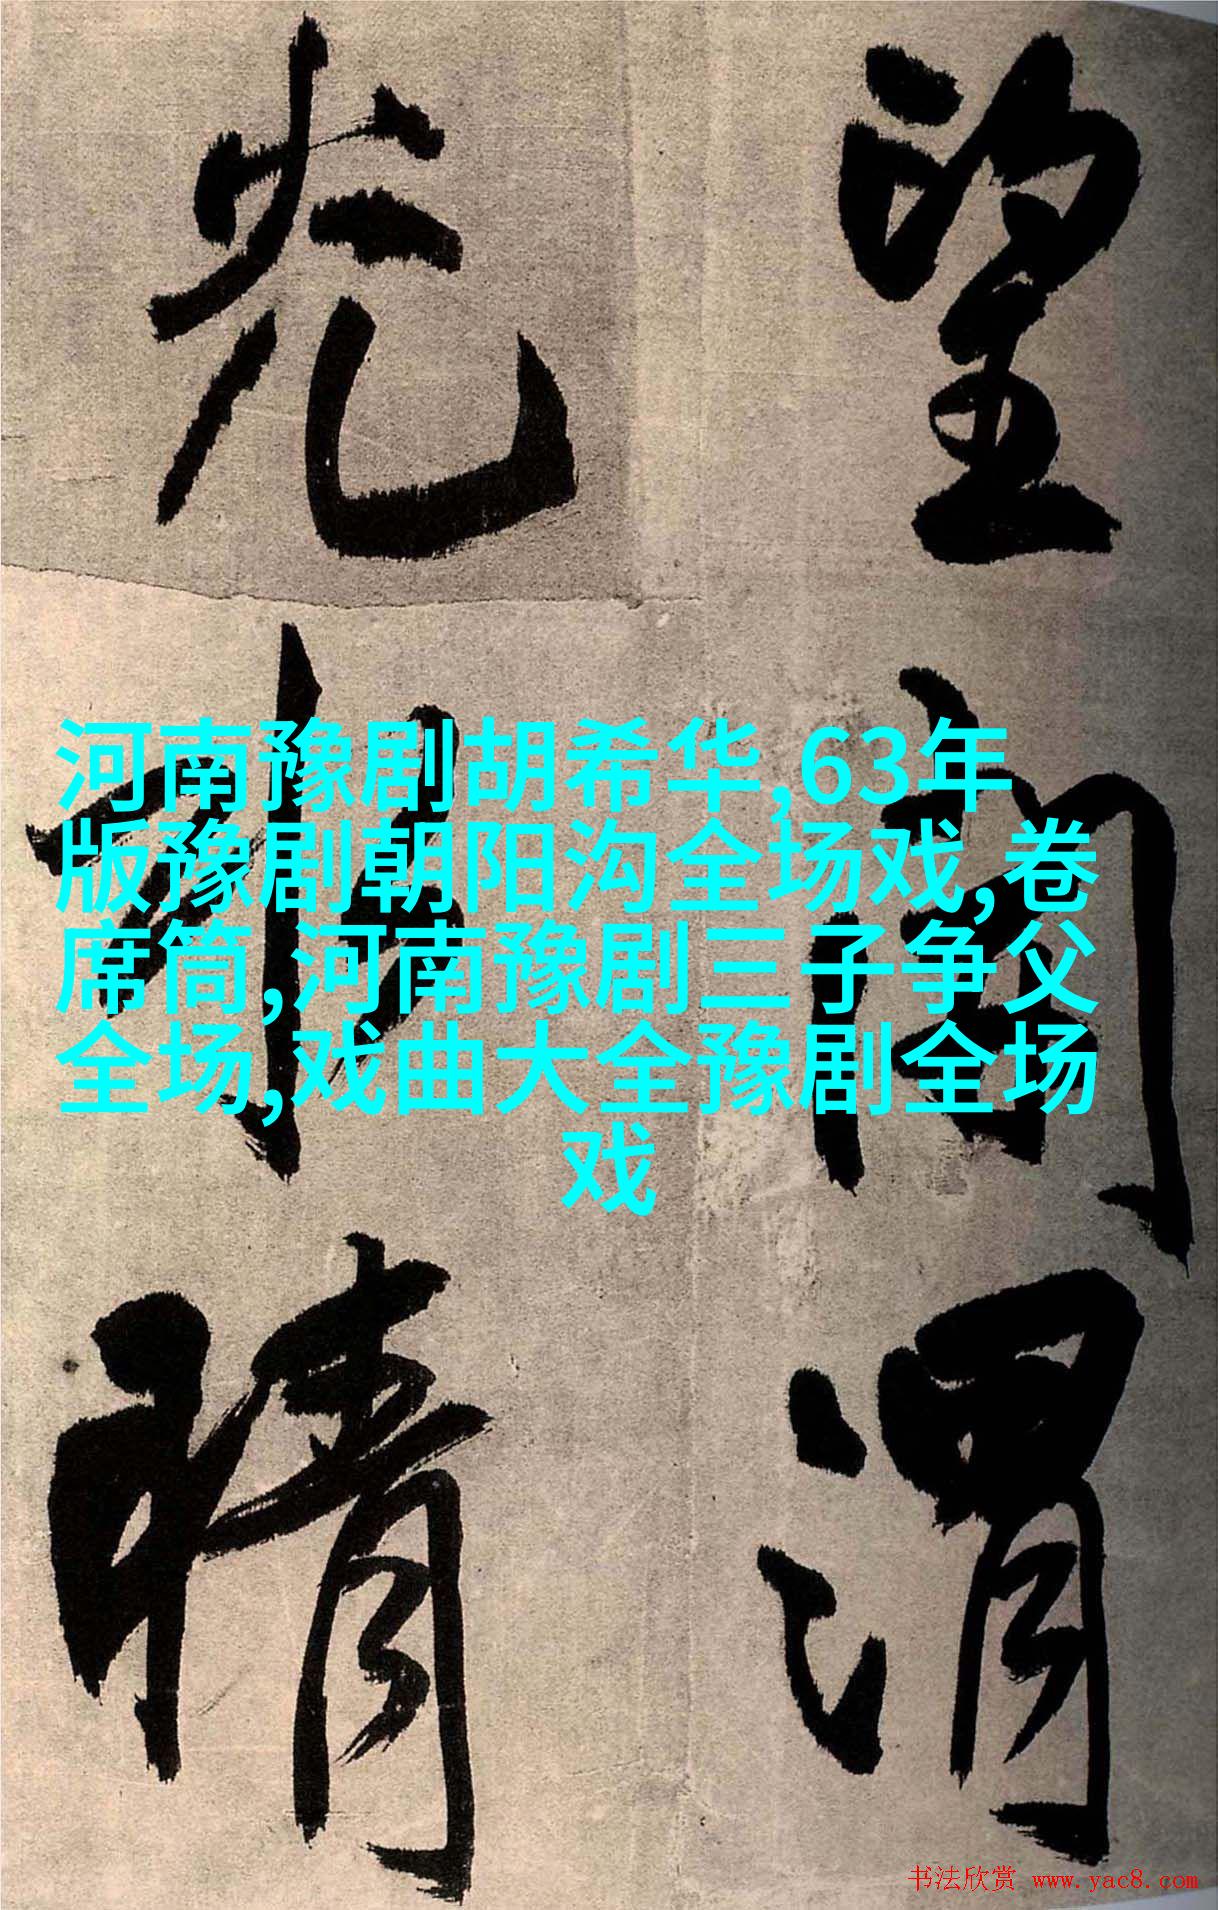 望 渭
光 晴
河南豫剧胡希华,63年
版豫剧朝阳沟全场戏,卷
席筒,河南豫剧三子争父
全场,戏曲大全豫剧全场
戏
书法欣赏 www.yac8.com